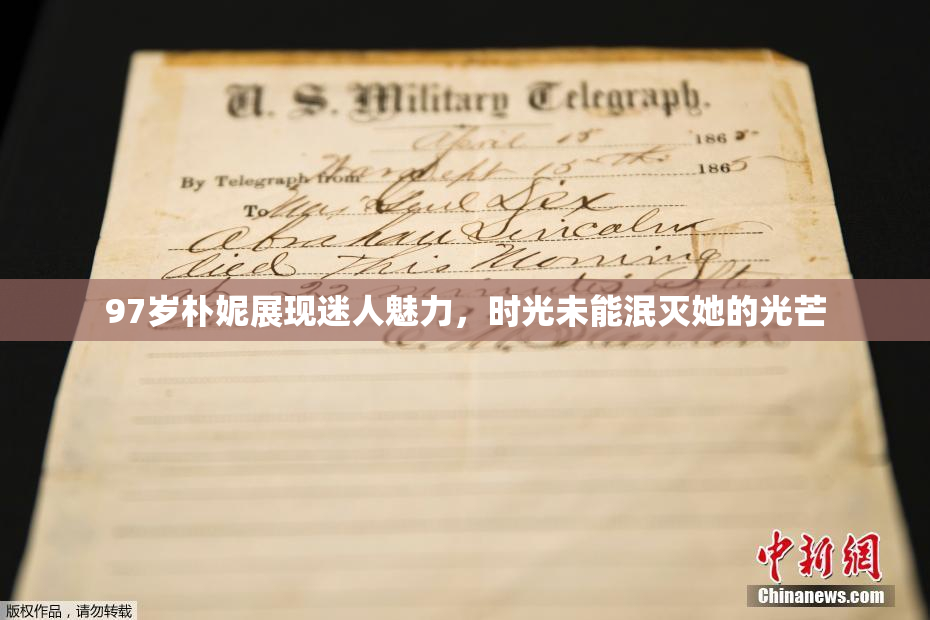 U. S. Military Telegraph.
April 15 1865
By Telegraph from War Dept 15th 1865
To Maj Genl Dix
Abraham Lincoln
died This Morning
at 22 minutes after
97岁朴妮展现迷人魅力，时光未能泯灭她的光芒
E. M. Stanton
中新网
Chinanews.com
版权作品，请勿转载